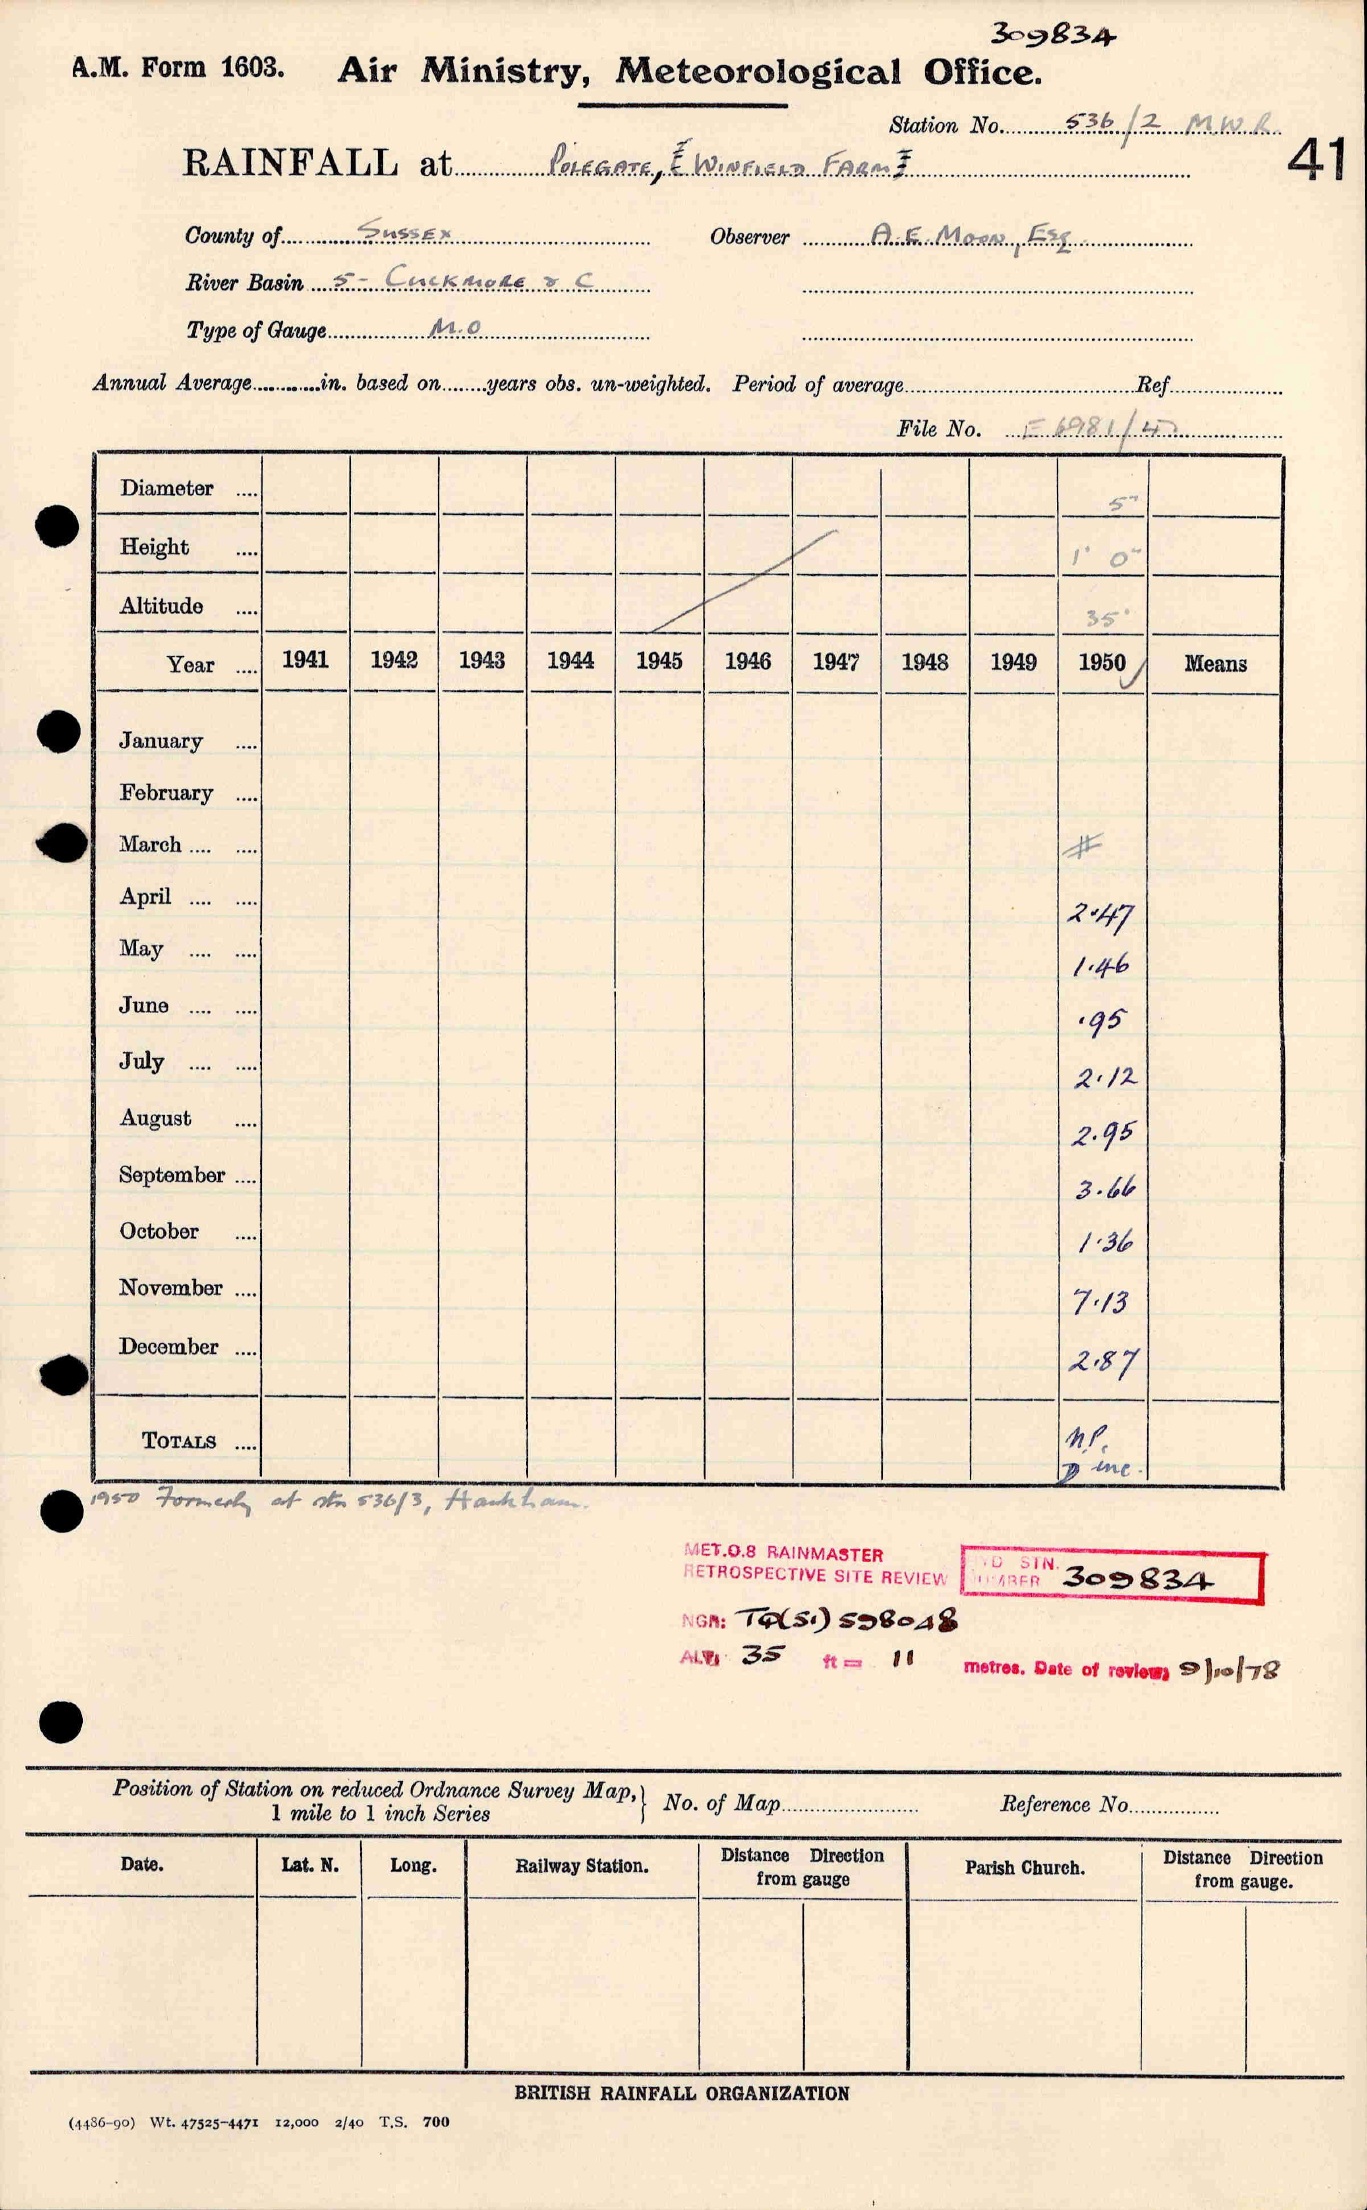 309834
A.M. Form 1603. Air Ministry, Meteorological Office.
Station No. 536/2 M.W.R.
41
RAINFALL at POLEGATE, [WINFIELD FARM]
County of SUSSEX Observer A.E. MOON, ESQ.
River Basin 5- CUCKMORE & C
Type of Gauge M.O
Annual Average............in. based on........years obs. un-weighted. Period of average........Ref........
File No. E 6981/
Diameter .... 5"
Height .... 1' 0"
Altitude .... 35'
Year .... 1941 1942 1943 1944 1945 1946 1947 1948 1949 1950 Means
January ....
February ....
March .... .... #
April .... .... 2.47
May .... .... 1.46
June .... .... .95
July .... .... 2.12
August .... 2.95
September .... 3.66
October .... 1.36
November .... 7.13
December .... 2.87
TOTALS .... N.P.
D inc.
1950 Formerly at stn 536/3, Hankham.
MET.O.8 RAINMASTER
RETROSPECTIVE SITE REVIEW
STN.
NUMBER 309834
NGR: TQ(51) 598048
ALT: 35 ft = 11 metres. Date of review: 9/10/78
Position of Station on reduced Ordnance Survey Map,
1 mile to 1 inch Series
No. of Map........ Reference No........
Date. Lat. N. Long. Railway Station. Distance Direction
from gauge Parish Church. Distance Direction
from gauge.
BRITISH RAINFALL ORGANIZATION
(4486-90) Wt. 47525-4471 12,000 2/40 T.S. 700